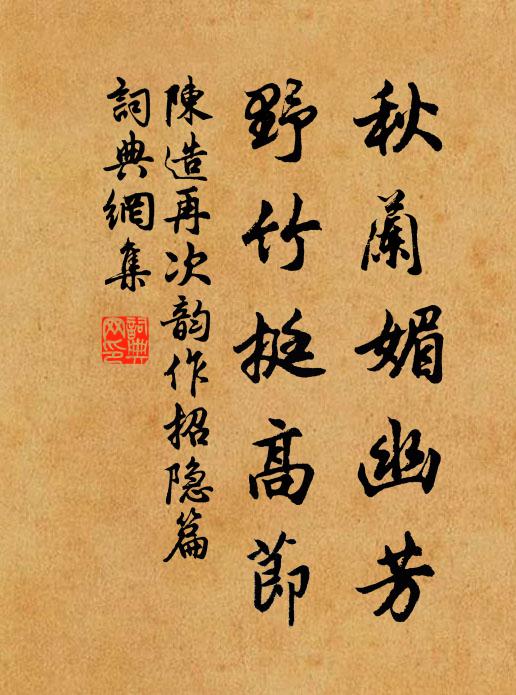 秋蘭媚幽芳
野竹挺高節
陳造再次韵作招隐篇
詞典網集
詞典网印